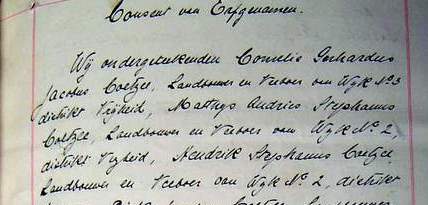 Consent van Erfgenamen.
Wij ondergeteekenden Cornelis Gerhardus
Jacobus Coetzee, Landbouwer en Veeboer van Wyk No 3
distrikt Vryheid, Matthys Andries Stephanus
Coetzee, Landbouwer en Veeboer van Wyk No 2,
distrikt Vryheid, Hendrik Stephanus Coetzee,
Landbouwer en Veeboer van Wyk No 2, distrikt